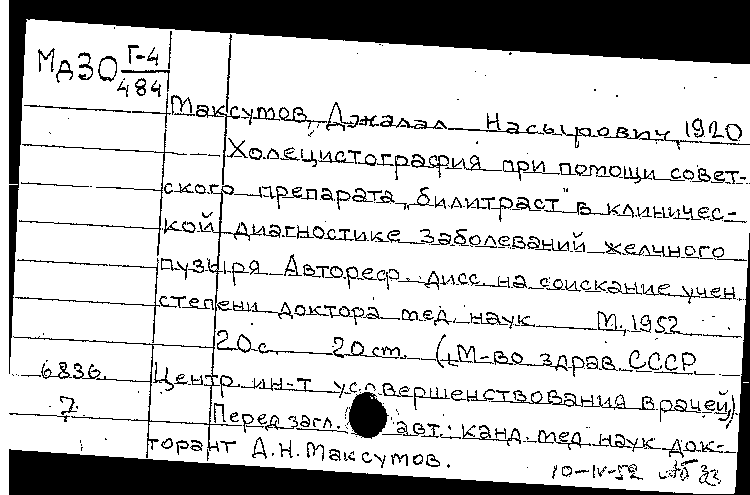 Мд30 Г-4
484
Максутов, Джалал Насырович, 1920
Холецистография при помощи совет-
ского препарата „билитраст" в клиничес-
кой диагностике заболеваний желчного
пузыря Автореф. дисс. на соискание учен
степени доктора мед. наук М., 1952
20 с. 20 ст. (М-во здрав. СССР.
6836. Центр. ин-т усовершенствования врачей)
7. Перед загл. авт.: канд. мед. наук док-
торант А.Н. Максутов.
10-IV-52